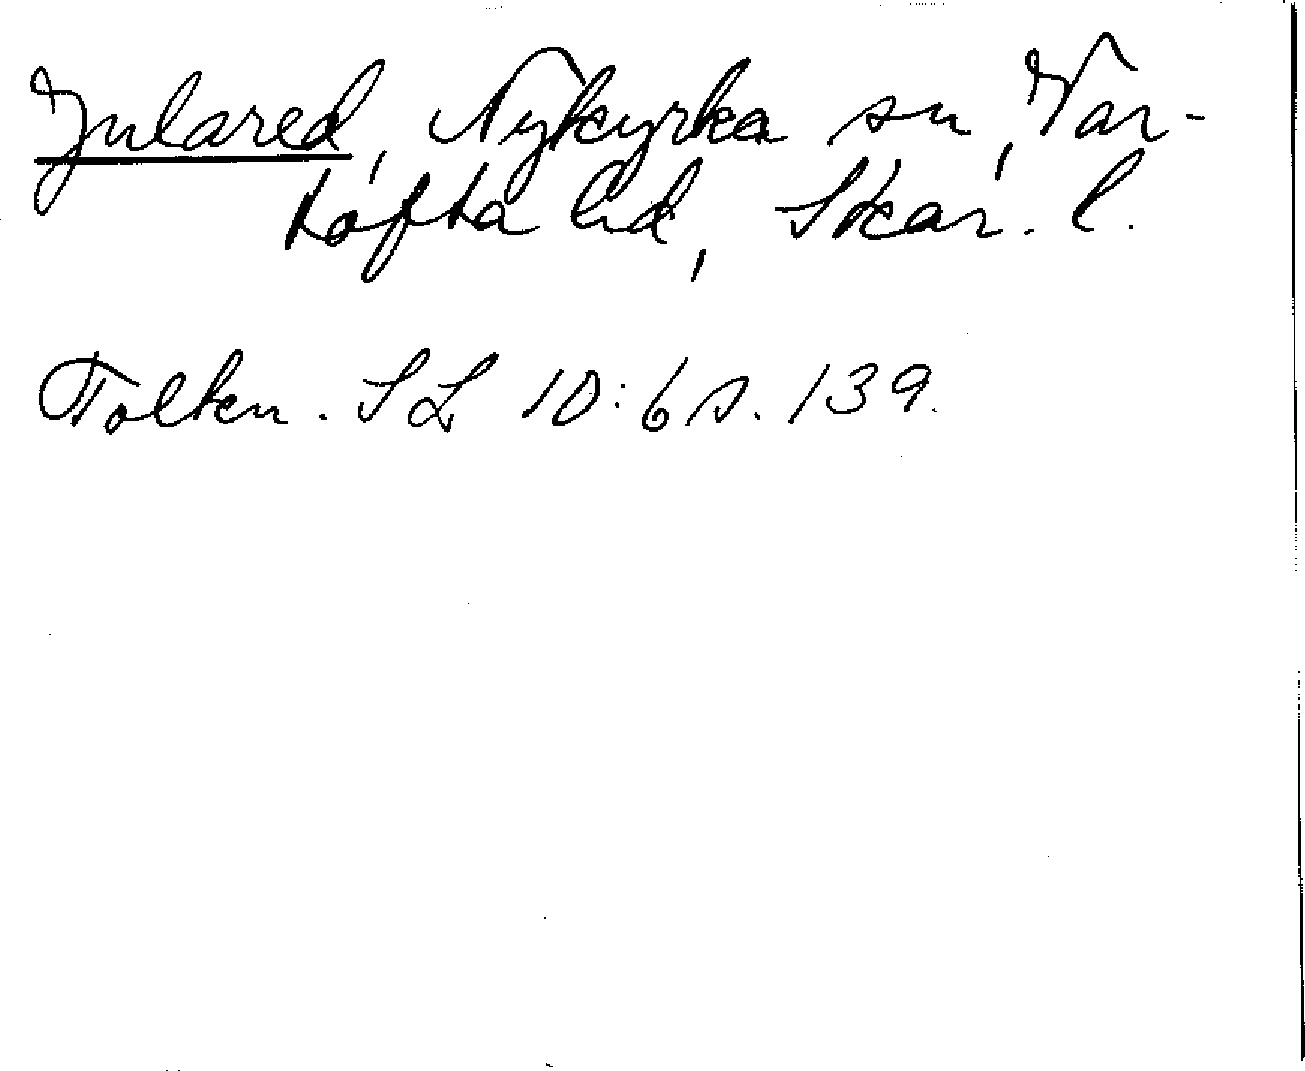 Julared, Nykyrka sn, Var-
tofta hd, Skar. l.
Tolkn. SL 10:6 s. 139.